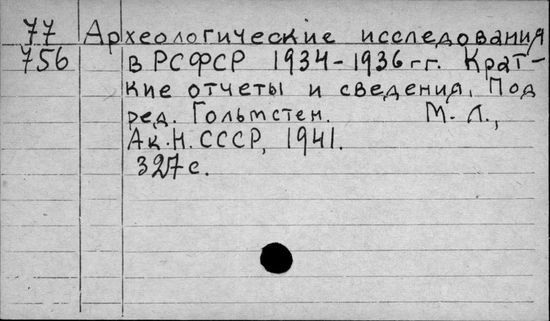 77 Археологические исследования
756 в РСФСР 1934-1936 гг. Крат-
кие отчеты и сведения. Под
ред. Гольмстен. М.-Л.,
Ак.Н. СССР, 1941.
327 с.